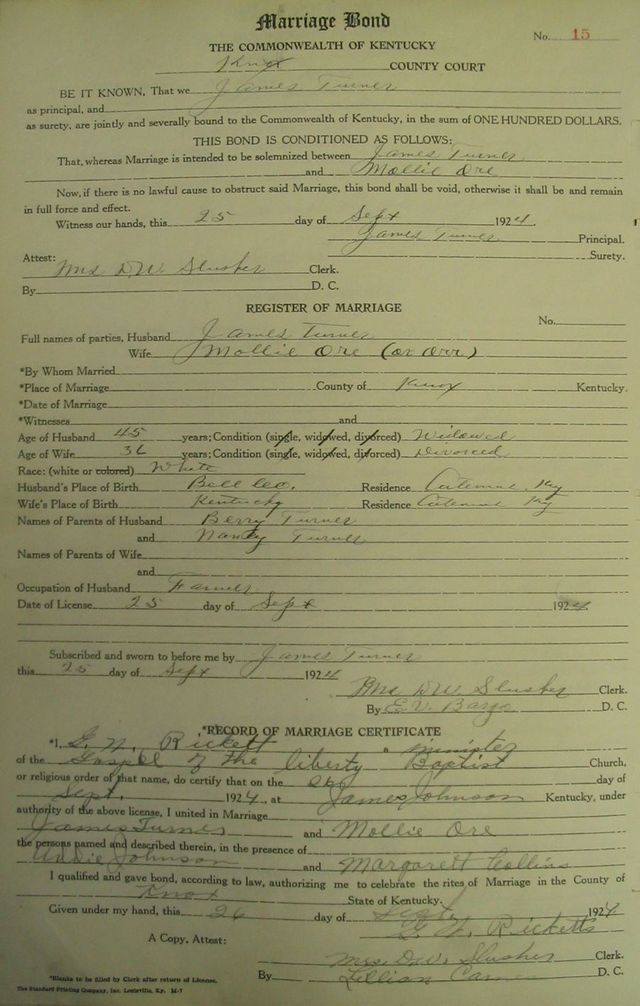 Marriage Bond
No. 15
THE COMMONWEALTH OF KENTUCKY
Knox COUNTY COURT
BE IT KNOWN, That we James Turner
as principal, and
as surety, are jointly and severally bound to the Commonwealth of Kentucky, in the sum of ONE HUNDRED DOLLARS.
THIS BOND IS CONDITIONED AS FOLLOWS:
That, whereas Marriage is intended to be solemnized between James Turner
and Mollie Ore
Now, if there is no lawful cause to obstruct said Marriage, this bond shall be void, otherwise it shall be and remain
in full force and effect.
Witness our hands, this 25 day of Sept 1924
James Turner Principal.
Surety.
Attest:
Mrs D.W. Slusher Clerk.
By D. C.
REGISTER OF MARRIAGE
No.
Full names of parties, Husband James Turner
Wife Mollie Ore (or Orr)
*By Whom Married
*Place of Marriage County of Knox Kentucky.
*Date of Marriage
*Witnesses and
Age of Husband 45 years; Condition (single, widowed, divorced) Widowed
Age of Wife 36 years; Condition (single, widowed, divorced) Divorced
Race: (white or colored) White
Husband's Place of Birth Bell Co. Residence Ky
Wife's Place of Birth Kentucky Residence Ky
Names of Parents of Husband Berry Turner
and Nancy Turner
Names of Parents of Wife
and
Occupation of Husband Farmer
Date of License 25 day of Sept 1924.
Subscribed and sworn to before me by James Turner
this 25 day of Sept 1924
Mrs D.W. Slusher Clerk.
By E.V. Bargo D. C.
*RECORD OF MARRIAGE CERTIFICATE
*I, G. N. Rickett a minister
of the Gospel of the liberty Baptist Church,
or religious order of that name, do certify that on the 26 day of
Sept. 1924, at James Johnson Kentucky, under
authority of the above license, I united in Marriage
James Turner and Mollie Ore
the persons named and described therein, in the presence of
Johnson and Margarett Collins
I qualified and gave bond, according to law, authorizing me to celebrate the rites of Marriage in the County of
Knox State of Kentucky.
Given under my hand, this 26 day of Sept, 1924
G. N. Ricketts
A Copy, Attest:
Mrs. D.W. Slusher Clerk.
By Lillian D. C.
*Blanks to be filled by Clerk after return of License.
The Standard Printing Company, Inc. Louisville, Ky. M-7